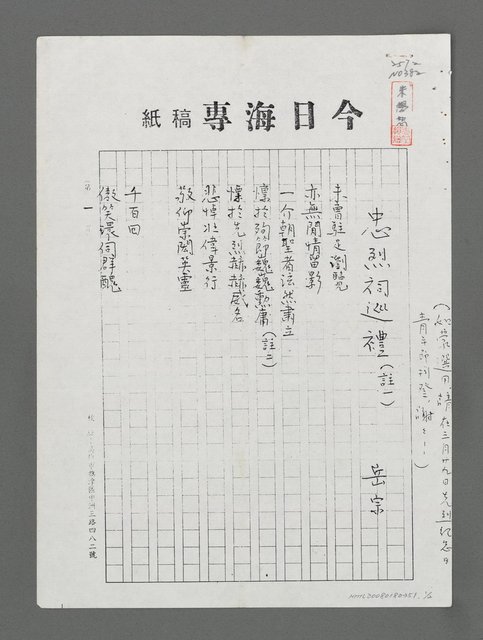 2572
NO382
今日海專稿紙
(如蒙選用,請在三月廿九日先烈紀念日
青年節刊登,謝謝!)
忠烈祠巡禮(註一)
岳宗
未曾駐足瀏覽
亦無閒情留影
一介朝聖者泫然肅立
懍於殉節巍巍勳庸(註二)
懍於先烈赫赫威名
悲悼非偉景行
敬仰崇閎英靈
千百回
傲笑環伺群醜
第一
中洲三路四八二號